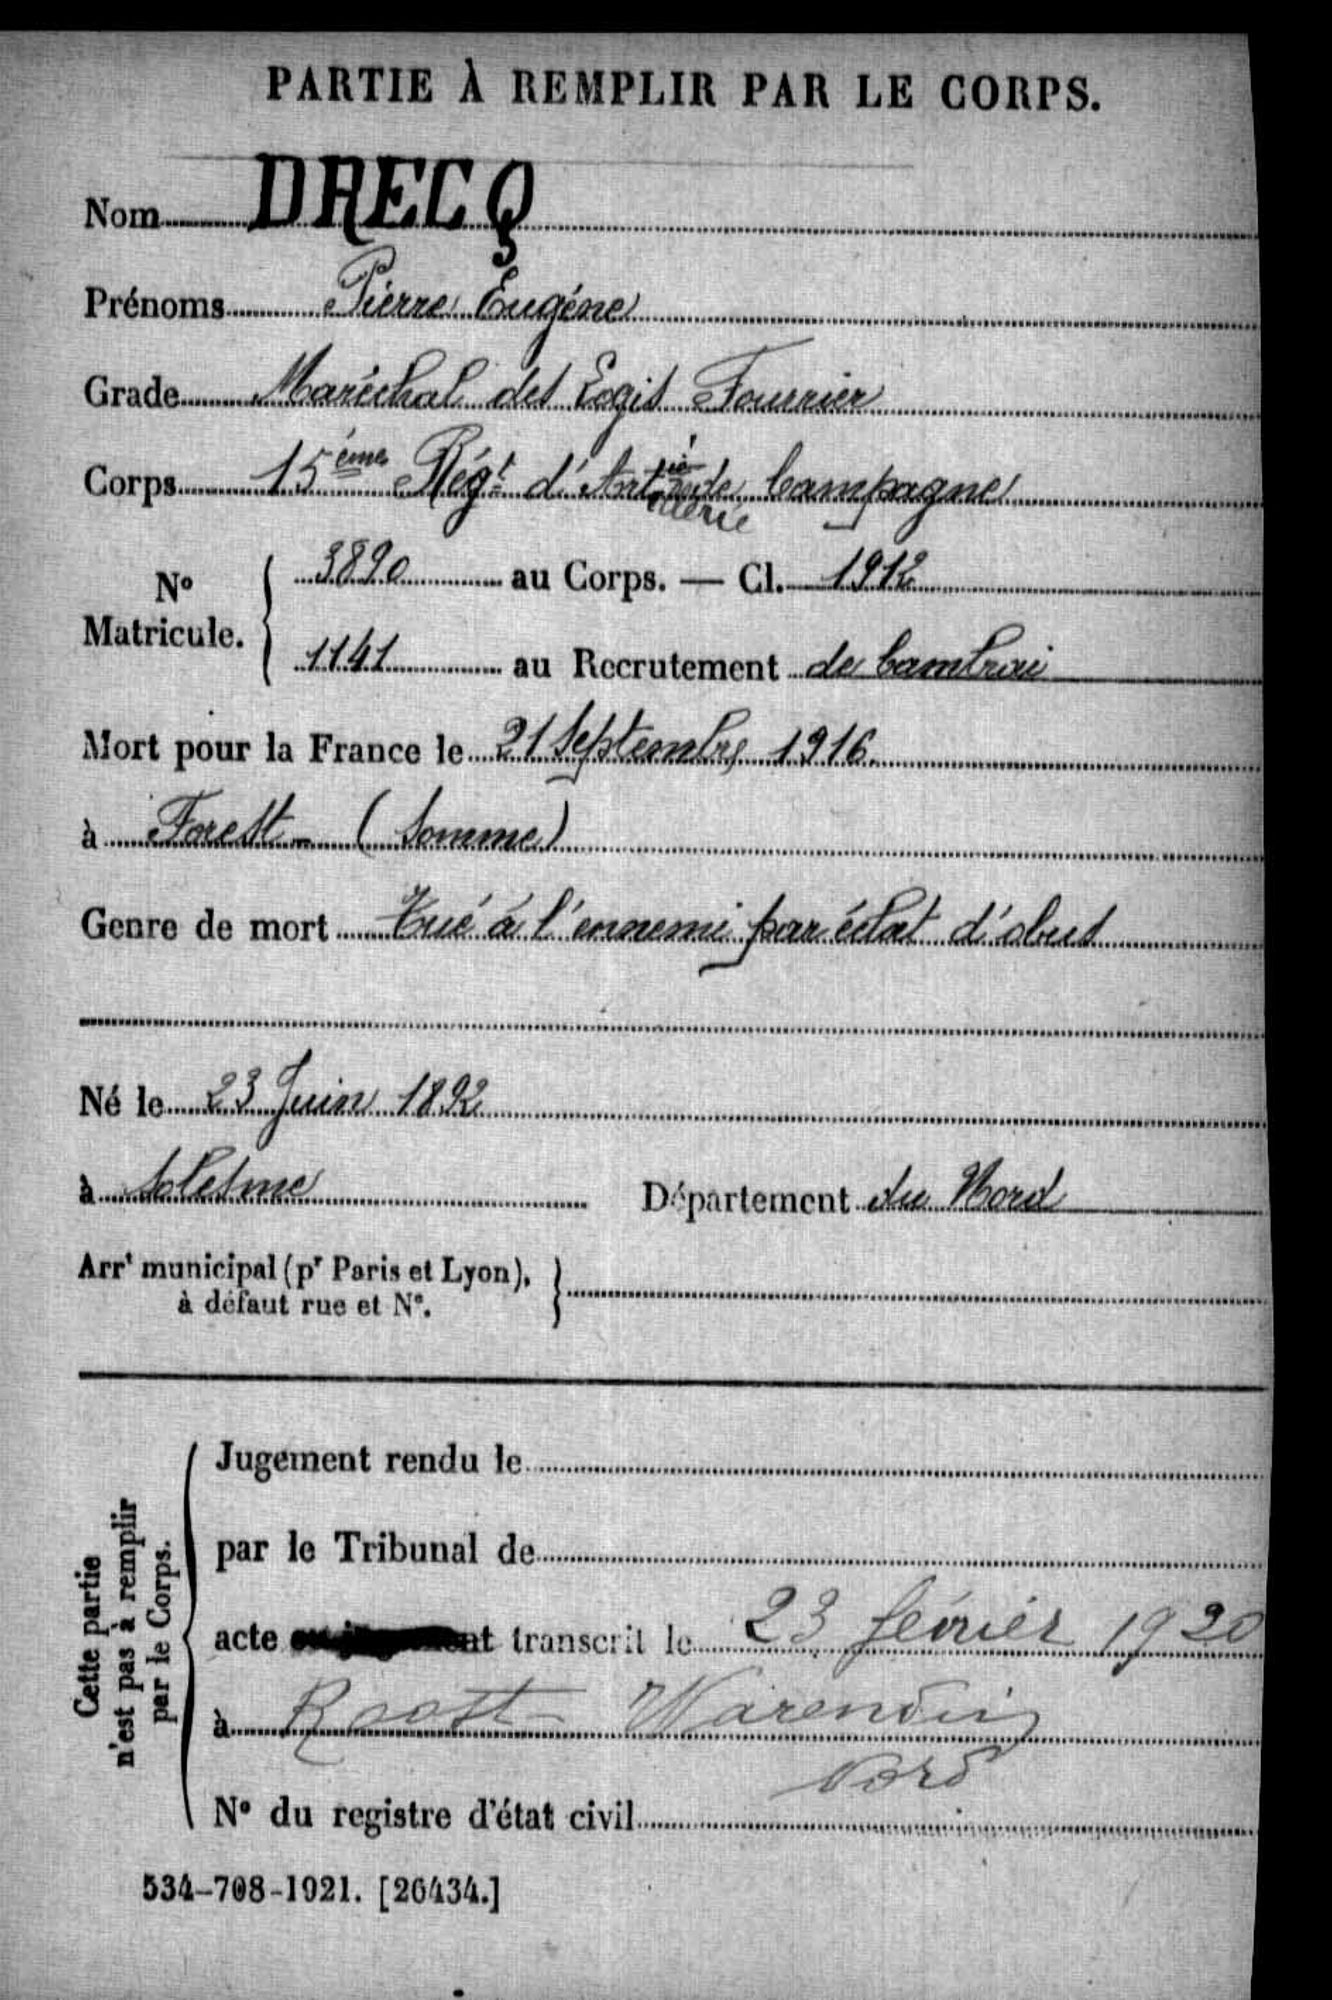 PARTIE À REMPLIR PAR LE CORPS.
Nom DRECQ
Prénoms Pierre Eugéne
Grade Maréchal des Logis Fourrier
Corps 15ème Régt d'Artillerie de Campagne
No Matricule. 3890 au Corps. — Cl. 1912
1141 au Recrutement de Cambrai
Mort pour la France le 21 Septembre 1916.
à Forest - (Somme)
Genre de mort Tué à l'ennemi par éclat d'obus
Né le 23 Juin 1892
à Solesme Département du Nord
Arrt municipal (pr Paris et Lyon),
à défaut rue et No.
Cette partie
n'est pas à remplir
par le Corps.
Jugement rendu le
par le Tribunal de
acte transcrit le 23 février 1920
à Roost-Warendin
Nord
No du registre d'état civil
534-708-1921. [26434.]